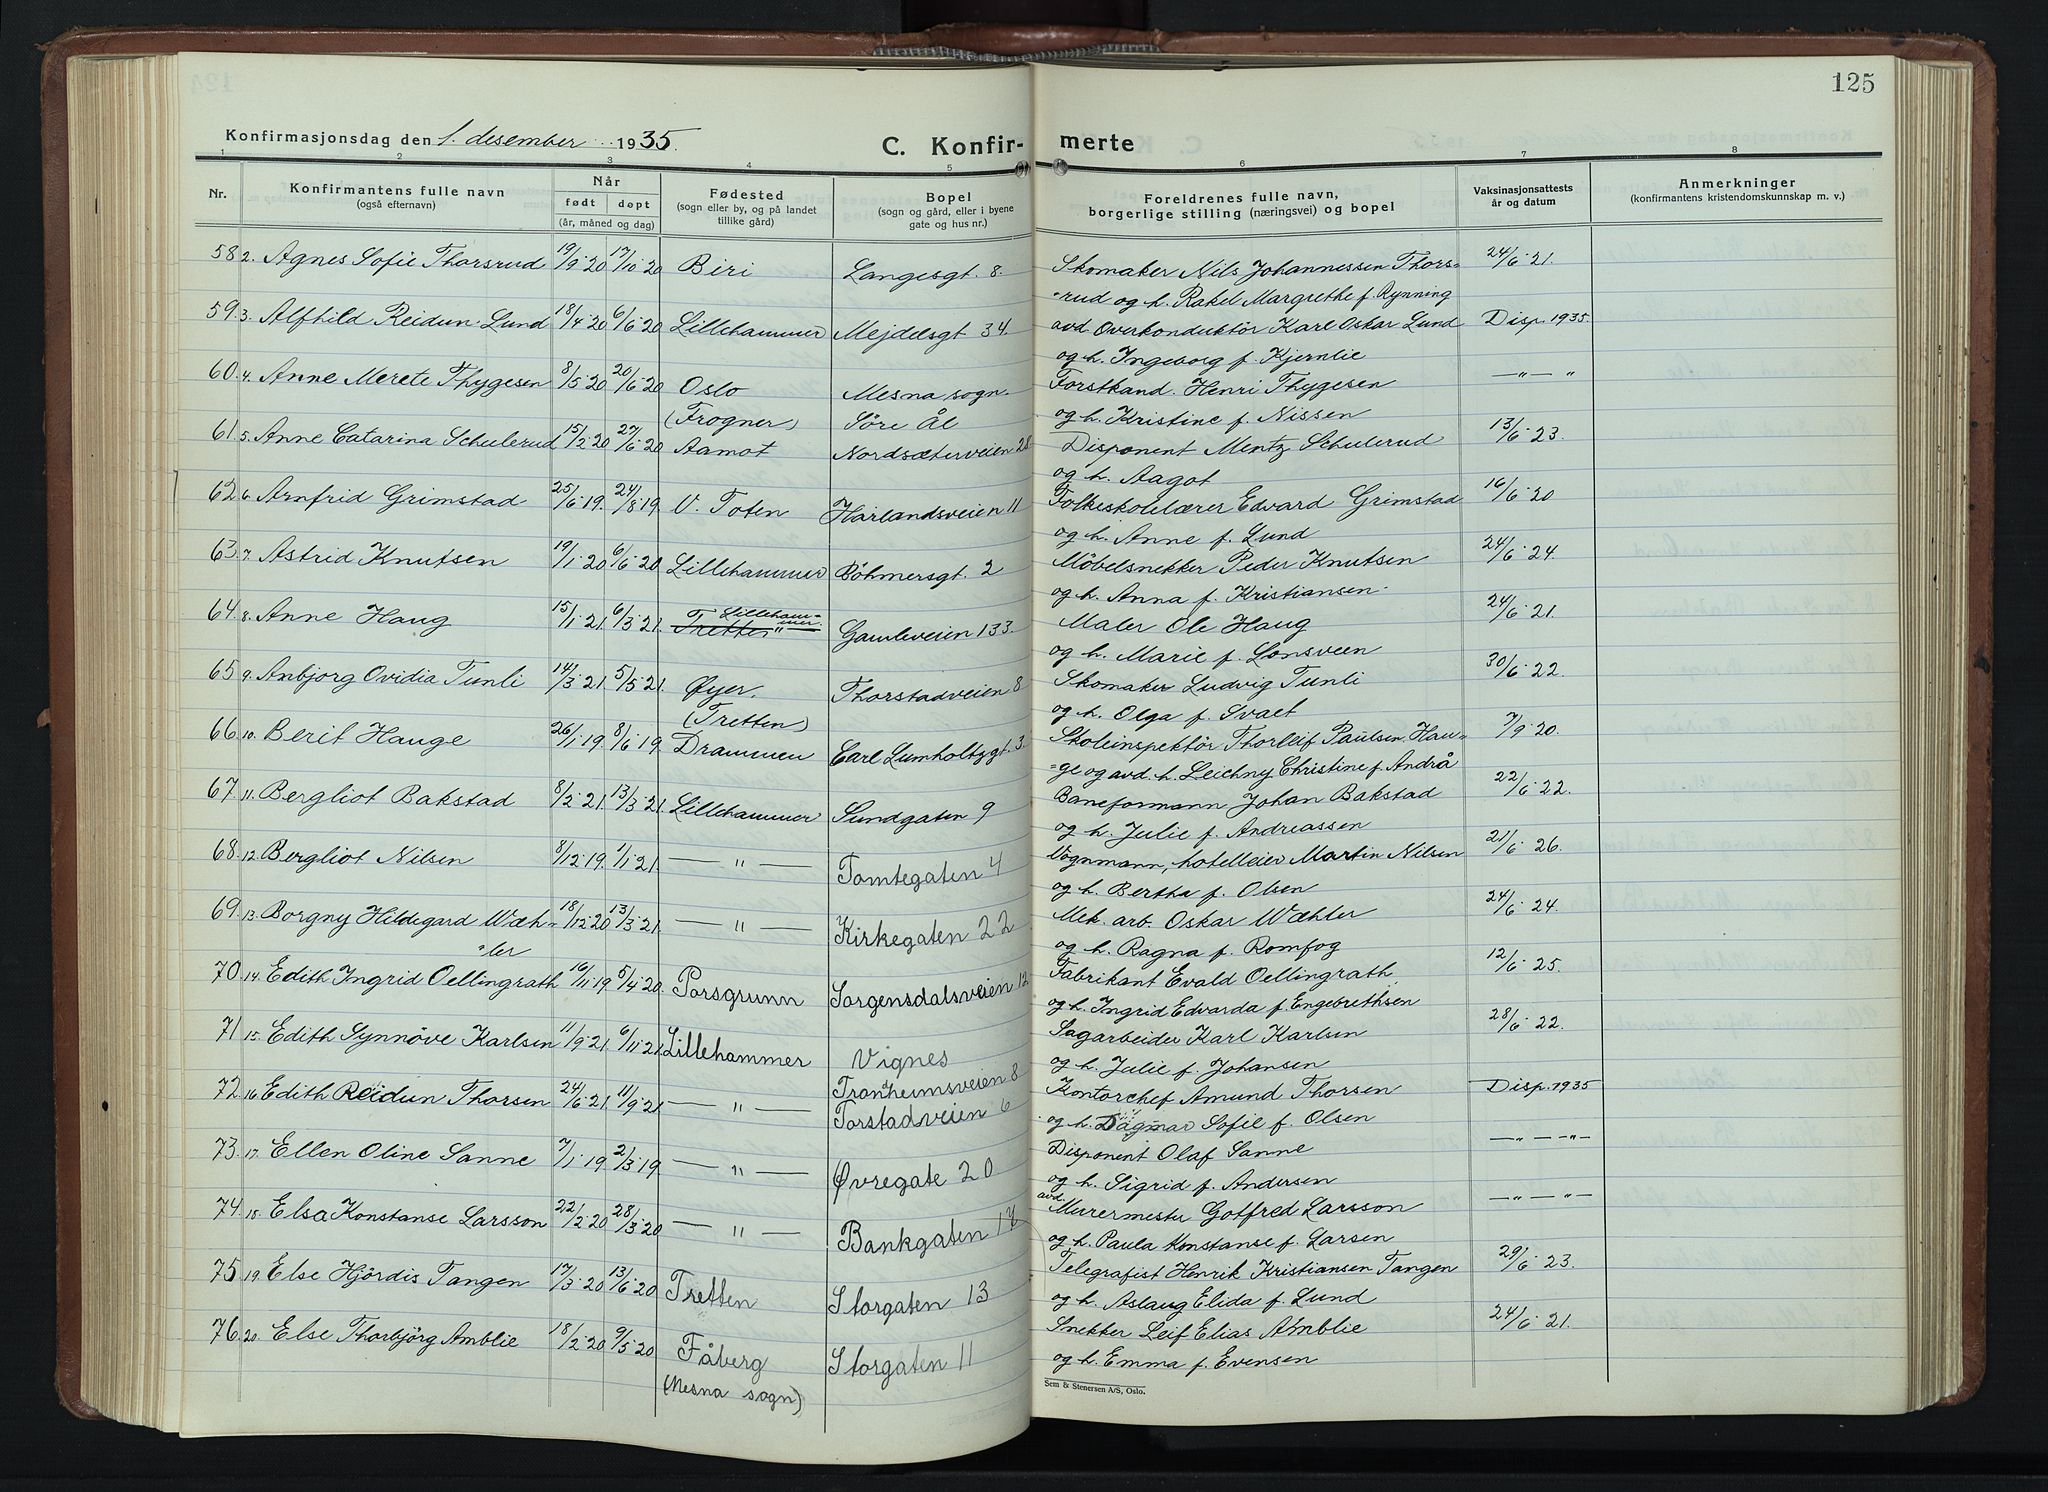 125
Konfirmasjonsdag den 1. desember 1935.
C. Konfir- merte
1 2 3 4 5 6 7 8
Nr. Konfirmantens fulle navn (også efternavn) Når født døpt (år, måned og dag) Fødested (sogn eller by, og på landet tillike gård) Bopel (sogn og gård, eller i byene gate og hus nr.) Foreldrenes fulle navn, borgerlige stilling (næringsvei) og bopel Vaksinasjonsattests år og datum Anmerkninger (konfirmantens kristendomskunnskap m. v.)
58 2. Agnes Sofie Thorsrud 19/9·20 17/10·20 Biri Langesgt. 8. Skomaker Nils Johannessen Thors- 24/6·21.
-rud og h. Rakel Margrethe f. Rynning
59 3. Alfhild Reidun Lund 18/4·20 6/6·20 Lillehammer Mejdelsgt 34. avd Overkonduktör Karl Oskar Lund Disp. 1935.
og h. Ingeborg f. Kjernlie
60 4. Anne Merete Thygesen 8/5·20 20/6·20 Oslo Mesna sogn. Forstkand. Henri Thygesen —"— "
(Frogner) Söre Ål og h. Kristine f. Nissen
61 5. Anne Catarina Schulerud 15/2·20 27/6·20 Aamot Nordsæterveien 28. Disponent Mentz Schulerud 13/6·23.
og h. Aagot
62 6. Arnfrid Grimstad 25/6·19. 24/8·19. V. Toten Hárlandsveien 11 Folkeskolelærer Edvard Grimstad 16/6·20
og h. Anne f. Lund
63 7. Astrid Knutsen 19/1·20 6/6·20 Lillehammer Böhmersgt. 2 Möbelsnekker Peder Knutsen 24/6·24.
og h. Anna f. Kristiansen.
64 8. Anne Haug 15/1·21. 6/3·21. Tretten Lillehammer Gamleveien 133. Maler Ole Haug 24/6·21.
og h. Marie f. Lonsveen
65 9. Anbjorg Ovidia Tunli 14/3·21. 5/5·21. Øyer. Thorstadveien 8 Skomaker Ludvig Tunli 30/6·22.
(Tretten) og h. Olga f. Svaet
66 10. Berit Hauge 26/1·19. 8/6·19. Drammen Carl Lumholtzgt. 3. Skoleinspektör Thorleif Paulsen Hau- 7/9·20.
-ge og avd. h. Leichny Christine f. Andrå
67 11. Bergliot Bakstad 8/2·21. 13/3·21. Lillehammer Sundgaten 9 Baneformann Johan Bakstad 22/6·22.
og h. Julie f. Andreassen
68 12. Bergliot Nilsen 8/12·19. 1/1·21. — " — Tomtegaten 4 Vognmann, hotelleier Martin Nilsen 21/6·26.
og h. Bertha f. Olsen
69 13. Borgny Hildegard Wæh- 18/12·20 13/3·21. — " — Kirkegaten 22 Mek. arb. Oskar Wæhler 24/6·24.
-ler og h. Ragna f. Romfog
70 14. Edith Ingrid Oellingrath 16/11·19. 5/4·20. Porsgrunn Sorgensdalsveien 12 Fabrikant Evald Oellingrath 12/6·25.
og h. Ingrid Edvarda f. Engebrethsen
71 15. Edith Synnöve Karlsen 11/9·21. 6/11·21. Lillehammer Vignes Sagarbeider Karl Karlsen 28/6·22.
og h. Julie f. Johansen
72 16. Edith Reidun Thorsen 24/6·21. 11/9·21 — " — Tranheimsveien 8 Kontorchef Amund Thorsen Disp. 1935
Torstadveien 6 og h. Dagmar Sofie f. Olsen
73 17. Ellen Oline Sanne 7/1·19. 2/3·19. — " — Øvregate 20 Disponent Olaf Sanne —"— —"—
og h. Sigrid f. Andersen
74 18. Elsa Konstanse Larsson 22/2·20 28/3·20 — " — Bankgaten 17 avd. Murermester Gotfred Larsson —"— "—
og h. Paula Konstanse f. Larsen
75 19. Else Hjördis Tangen 17/3·20 13/6·20 Tretten Storgaten 13 Telegrafist Henrik Kristiansen Tangen 29/6·23.
og h. Aslaug Elida f. Lund
76 20. Else Thorbjörg Amblie 18/2·20 9/5·20 Fåberg Storgaten 11 Snekker Leif Elias Amblie 24/6·21.
(Mesna sogn) og h. Emma f. Evensen
Sem & Stenersen A/S, Oslo.